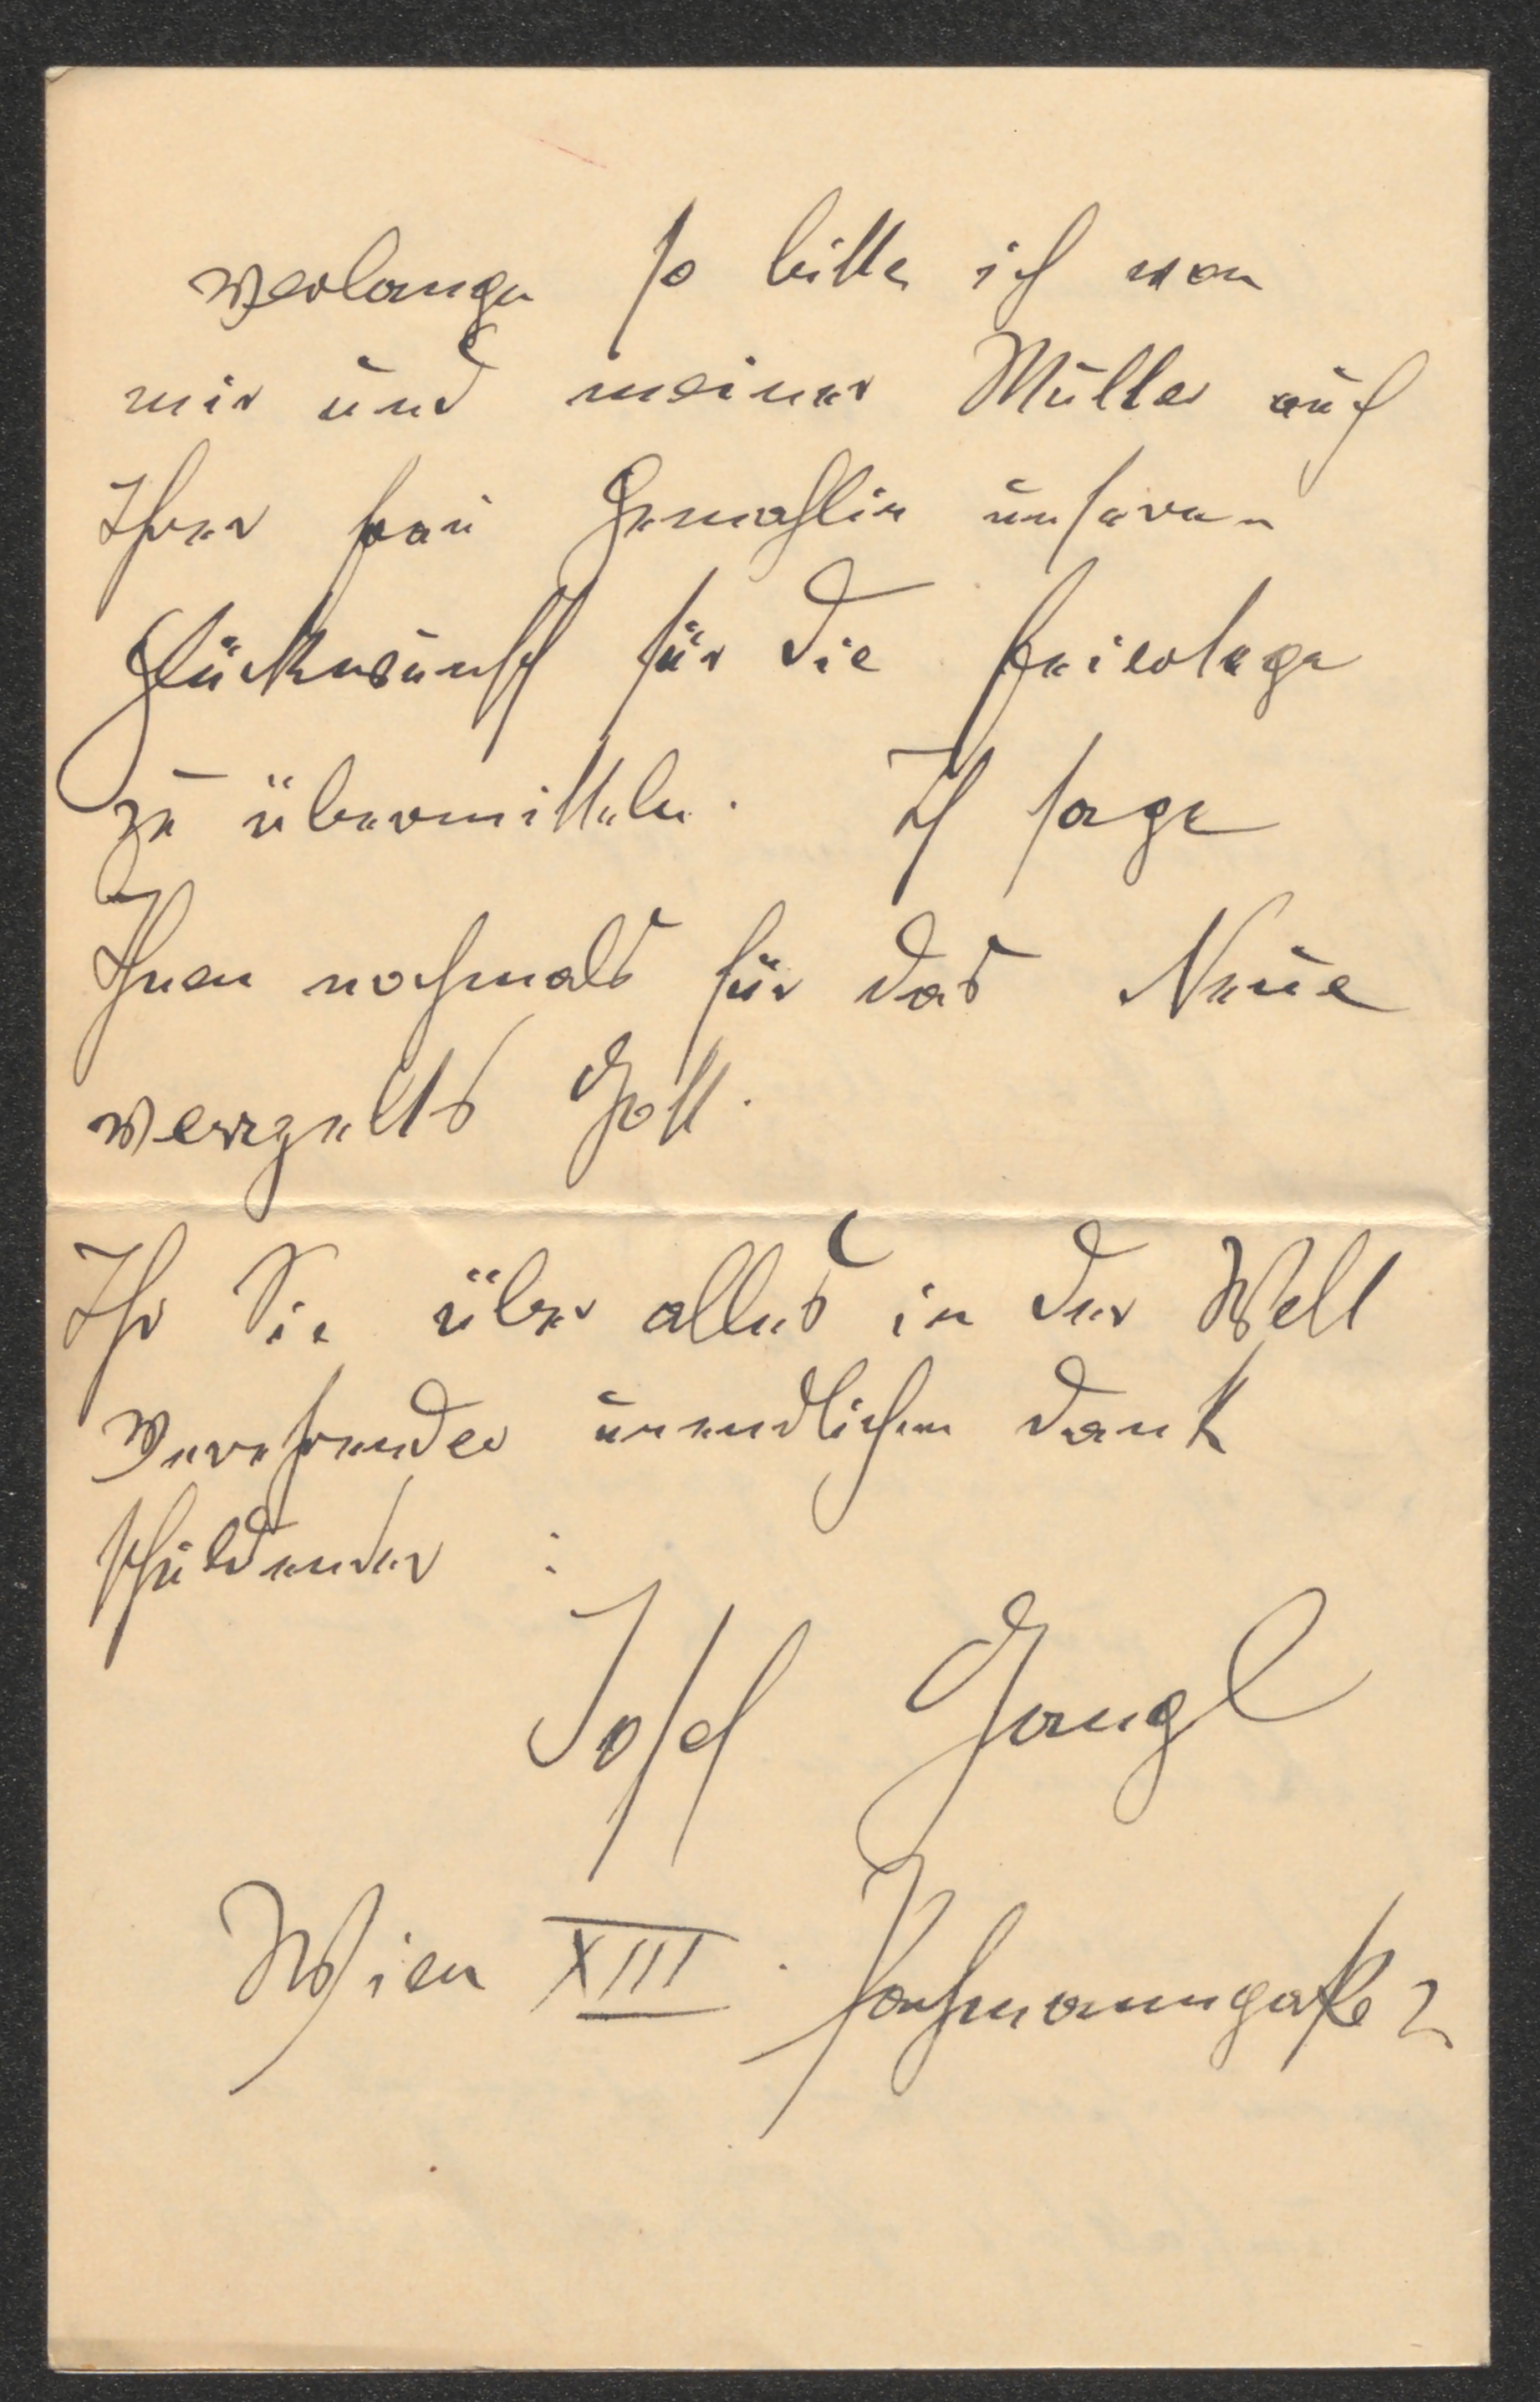 verlangen so bitte ich von
mir und meiner Mutter auch
Ihrer frau Gemahlin unseren
Glückwunsch für die feiertage
zu übermitteln. Ich sage
Ihnen nochmals für das Neue
vergelts Gott.
Ihr Sie über alles in der Welt
verehrender unendlichen dank
schuldender :
Josef Gangl
Wien XIII. 2